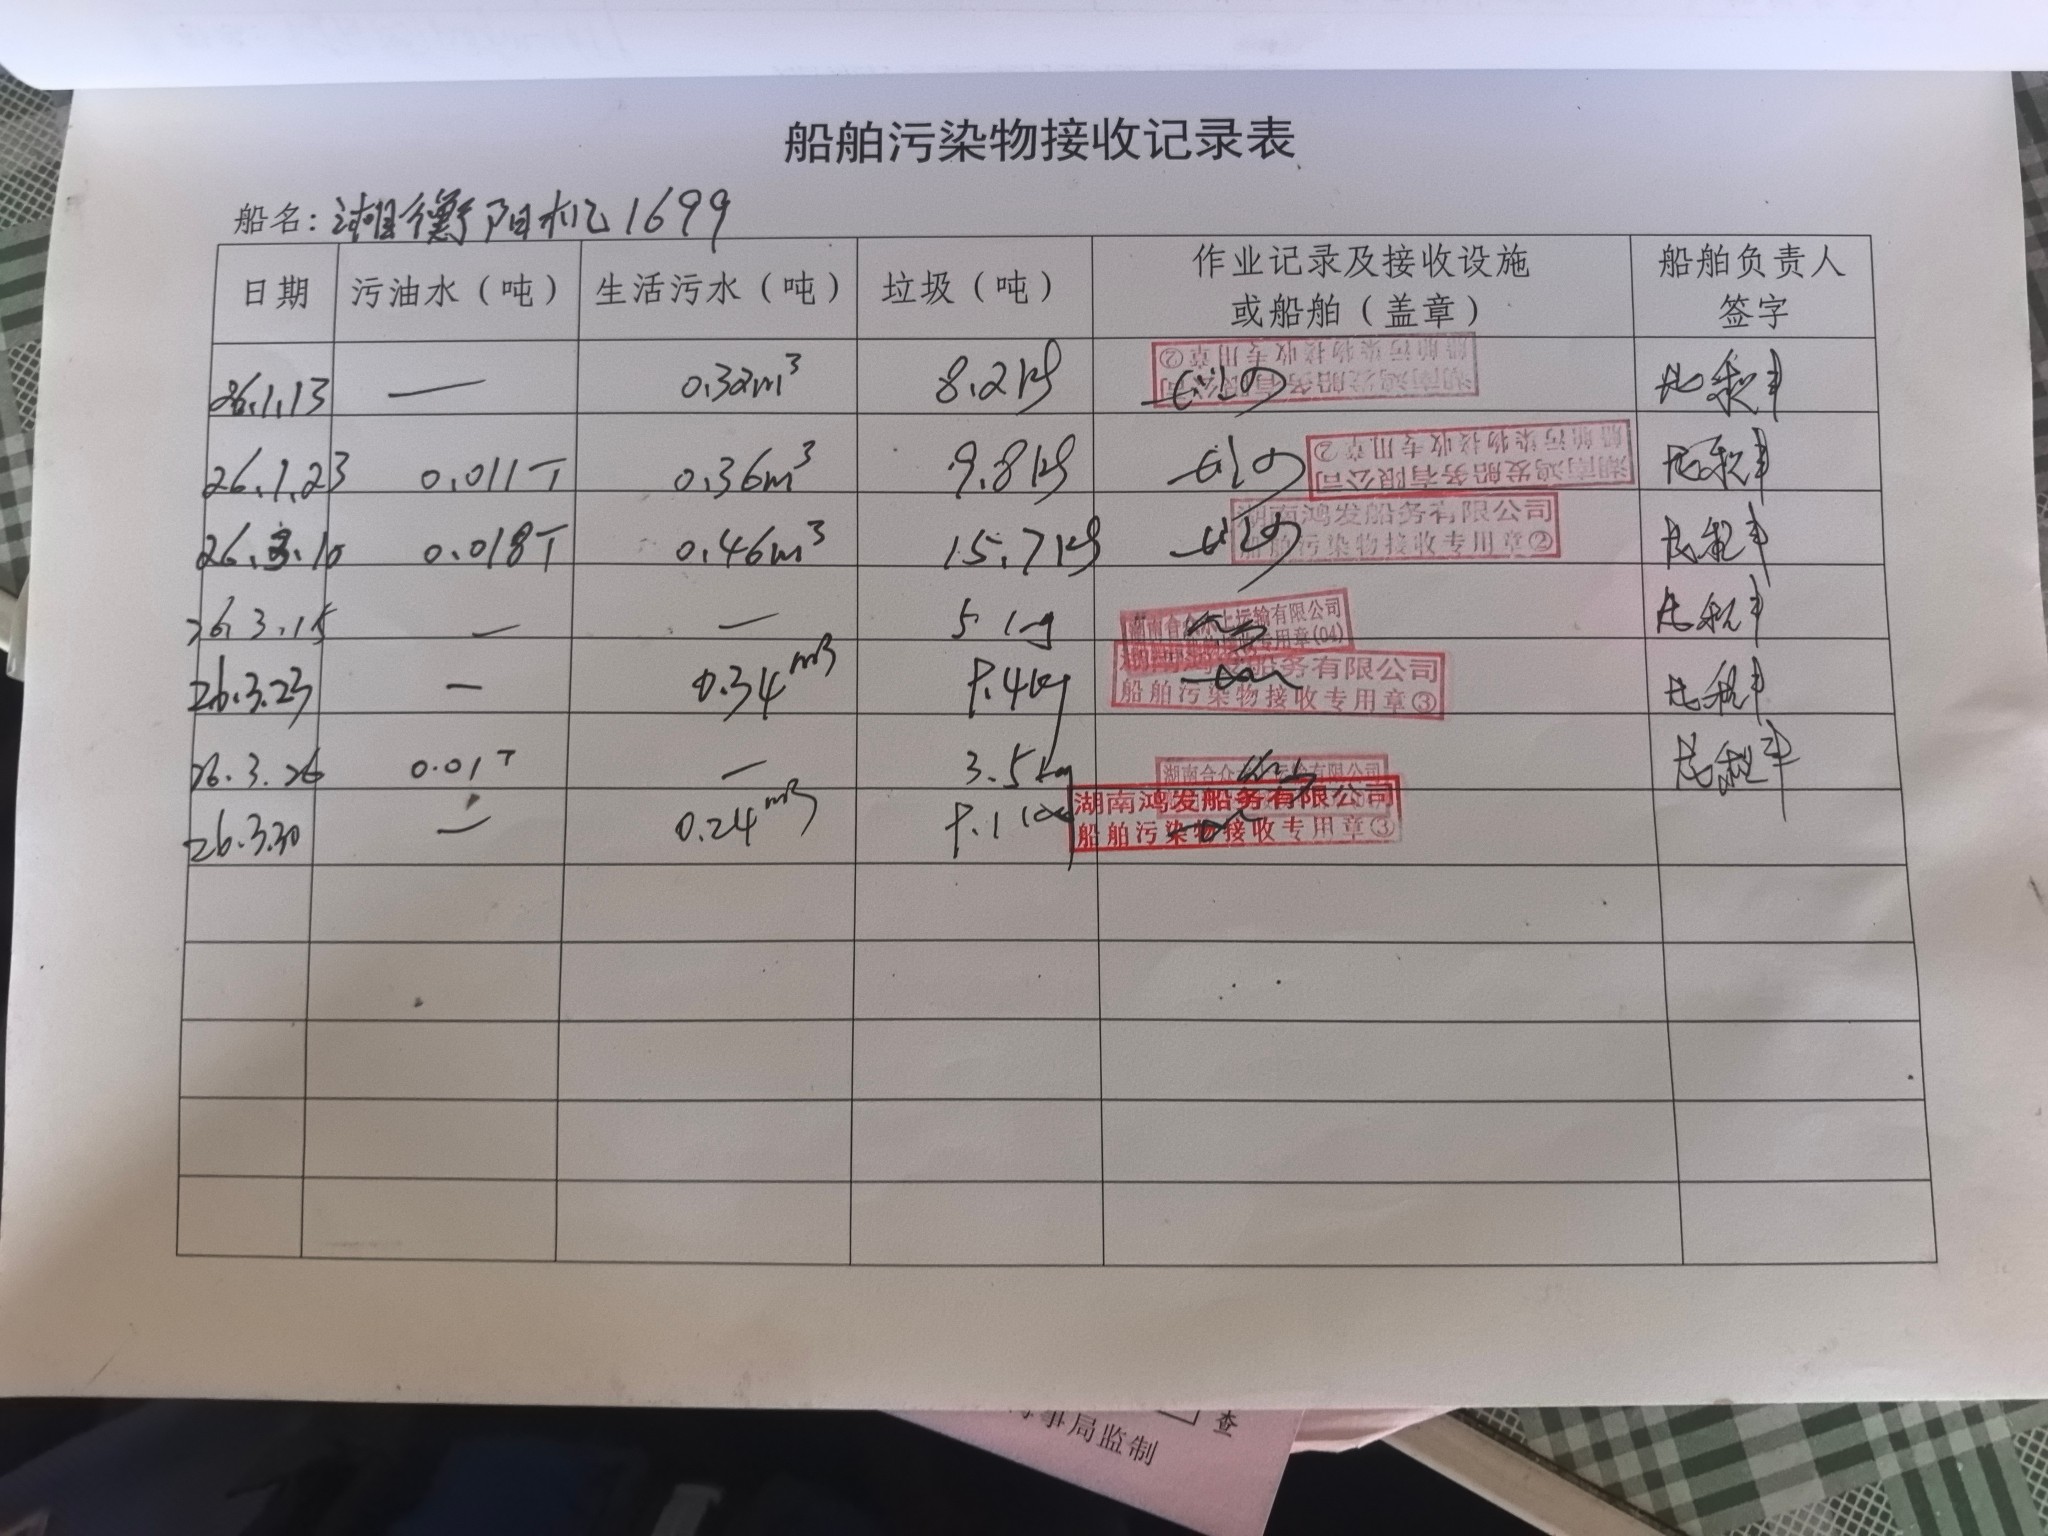 船舶污染物接收记录表
船名：湘衡阳机1699
日期 污油水（吨） 生活污水（吨） 垃圾（吨） 作业记录及接收设施或船舶（盖章） 船舶负责人签字
26.1.13 — 0.32m³ 8.2kg 湖南鸿发船务有限公司 船舶污染物接收专用章②
26.1.23 0.011T 0.36m³ 9.8kg 湖南鸿发船务有限公司 船舶污染物接收专用章②
26.3.10 0.018T 0.46m³ 15.7kg 湖南鸿发船务有限公司 船舶污染物接收专用章②
26.3.15 — — 5kg 湖南合众水上运输有限公司 专用章(04)
26.3.23 — 0.34m³ 9.4kg 船务有限公司 船舶污染物接收专用章③
26.3.26 0.01T — 3.5kg 湖南合众 运输有限公司
26.3.30 — 0.24m³ 9.1kg 湖南鸿发船务有限公司 船舶污染物接收专用章③
查
事局监制